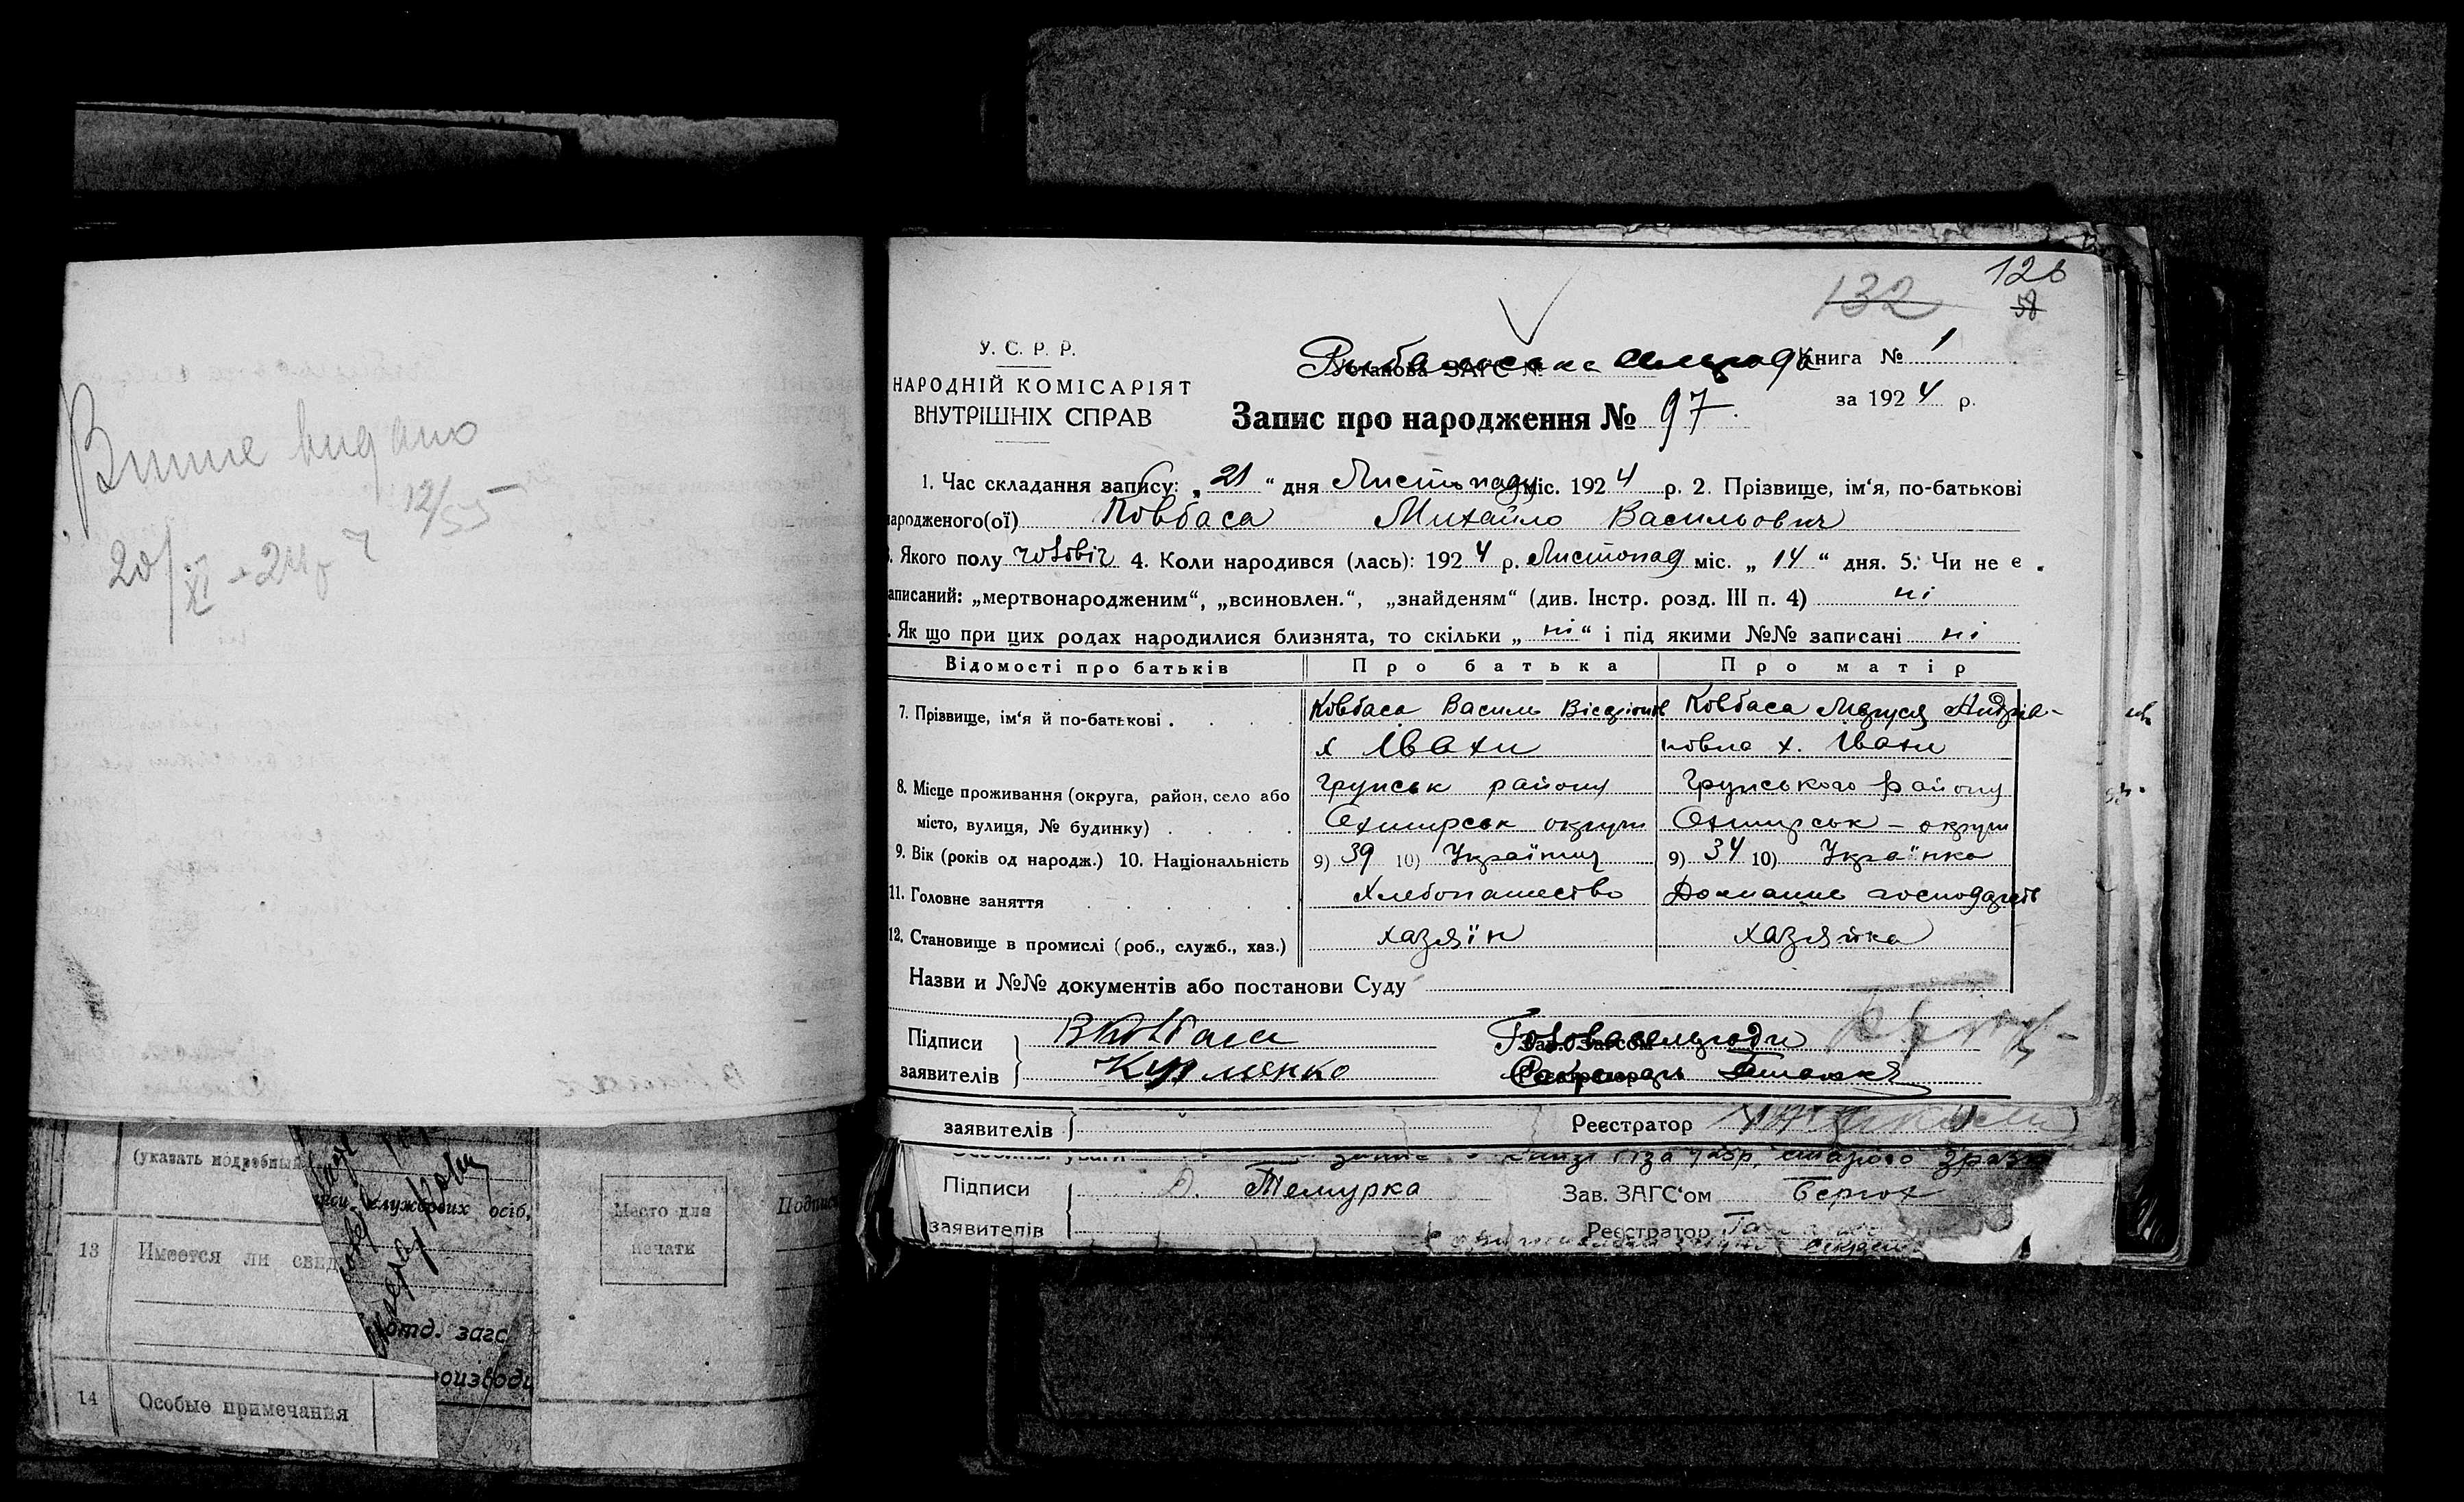 Внише видано
12/55
20/XI - 24 р
132
126
58
У. С. Р. Р.
НАРОДНІЙ КОМІСАРІЯТ
ВНУТРІШНІХ СПРАВ
Установа ЗАГС №
Рибальська сельрода
Книга № 1
за 1924 р.
Запис про народження № 97.
1. Час складання запису: „21“ дня Листопаду міс. 1924 р. 2. Прізвище, ім‘я, по-батькові
народженого(ої) Ковбаса Михайло Васильович
3. Якого полу чоловіч 4. Коли народився (лась): 1924 р. Листопад міс. „14“ дня. 5. Чи не е
записаний: „мертвонародженим“, „всиновлен.“, „знайденям“ (див. Інстр. розд. III п. 4) ні
. Як що при цих родах народилися близнята, то скільки „ні“ і під якими №№ записані ні
Відомості про батьків Про батька Про матір
7. Прізвище, ім‘я й по-батькові . Ковбаса Василь Ковбаса Маруся Андріа-
х Івахи новна х. Івахи
8. Місце проживання (округа, район, село або Грунськ району Грунського району
місто, вулиця, № будинку) . Охтирськ округи Охтирськ - округи
9. Вік (років од народж.) 10. Національність 9) 39 10) Україниц 9) 34 10) Українка
11. Головне заняття Хлебопашество Домашне господарств
12. Становище в промислі (роб., служб., хаз.) хазяїн хазяйка
Назви и №№ документів або постанови Суду
Підписи ВКовбаса Голова сельроди
заявителів Кузменко Секретарь
заявителів Реєстратор
Підписи Д. Темурка Зав. ЗАГС‘ом
заявителів Реєстратор
(указать подробный
службових осіб,
13 Имеется ли свид
отд. загс
14 Особые примечания
Место для
печати
Подпис